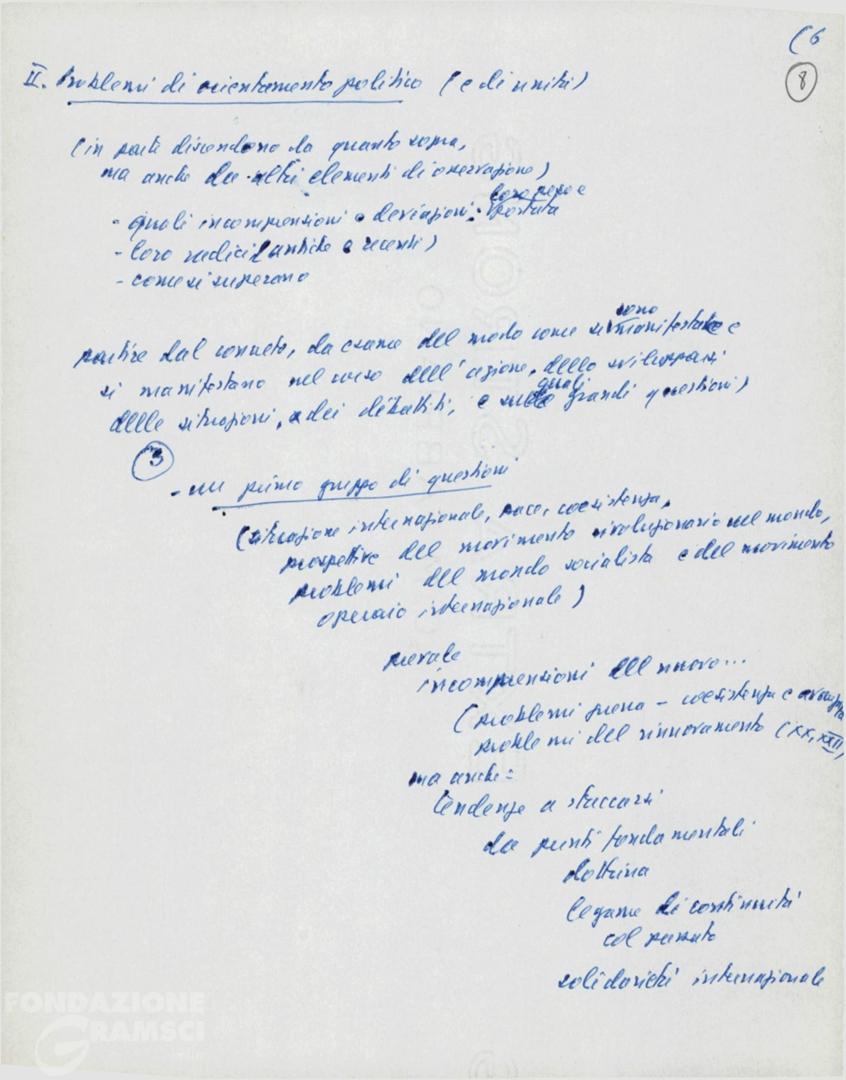 (6
8
II. Problemi di orientamento politico (e di unità)
(in parte discendono da quanto sopra,
ma anche da altri elementi di osservazione)
- quali incomprensioni e deviazioni: loro peso e portata
- loro radici (antiche e recenti)
- come si superano
partire dal concreto, da esame del modo come si sono manifestate e
si manifestano nel corso dell'azione, dello svilupparsi
delle situazioni, e dei dibattiti, e quali grandi questioni)
3
- un primo gruppo di questioni
(situazione internazionale, pace, coesistenza,
prospettive del movimento rivoluzionario nel mondo,
problemi del mondo socialista e del movimento
operaio internazionale)
prevale
incomprensioni del nuovo...
(problemi guerra - coesistenza e avanzata
problemi del rinnovamento (XX, XXII)
ma anche:
tendenze a staccarsi
da punti fondamentali
dottrina
legame di continuità
col passato
solidarietà internazionale
FONDAZIONE
GRAMSCI